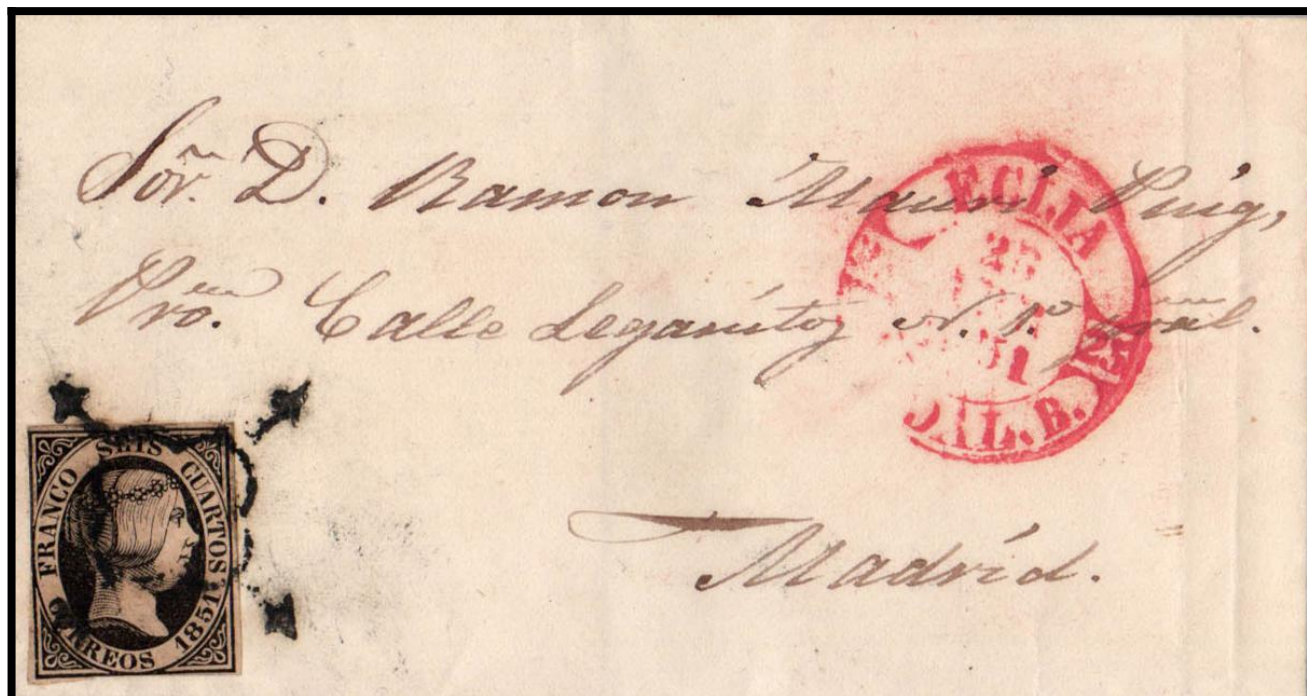 Sor. D. Ramon Mauri Puig,
Pro. Calle Leganitos N. 1º pral.
Madrid.
ECIJA
25
51
DAL. B.
FRANCO SEIS CUARTOS
CORREOS 1851